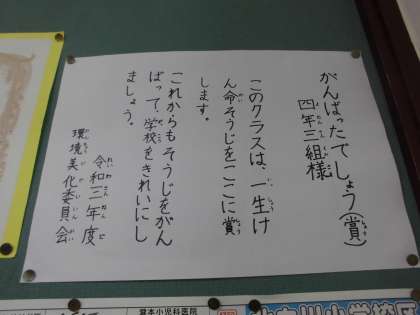 がんばったでしょう(賞)
四年三組様
このクラスは、一生け
ん命そうじをここに賞
します。
これからもそうじをがん
ばって、学校をきれいにし
ましょう。
令和三年度
環境美化委員会
小児科医院